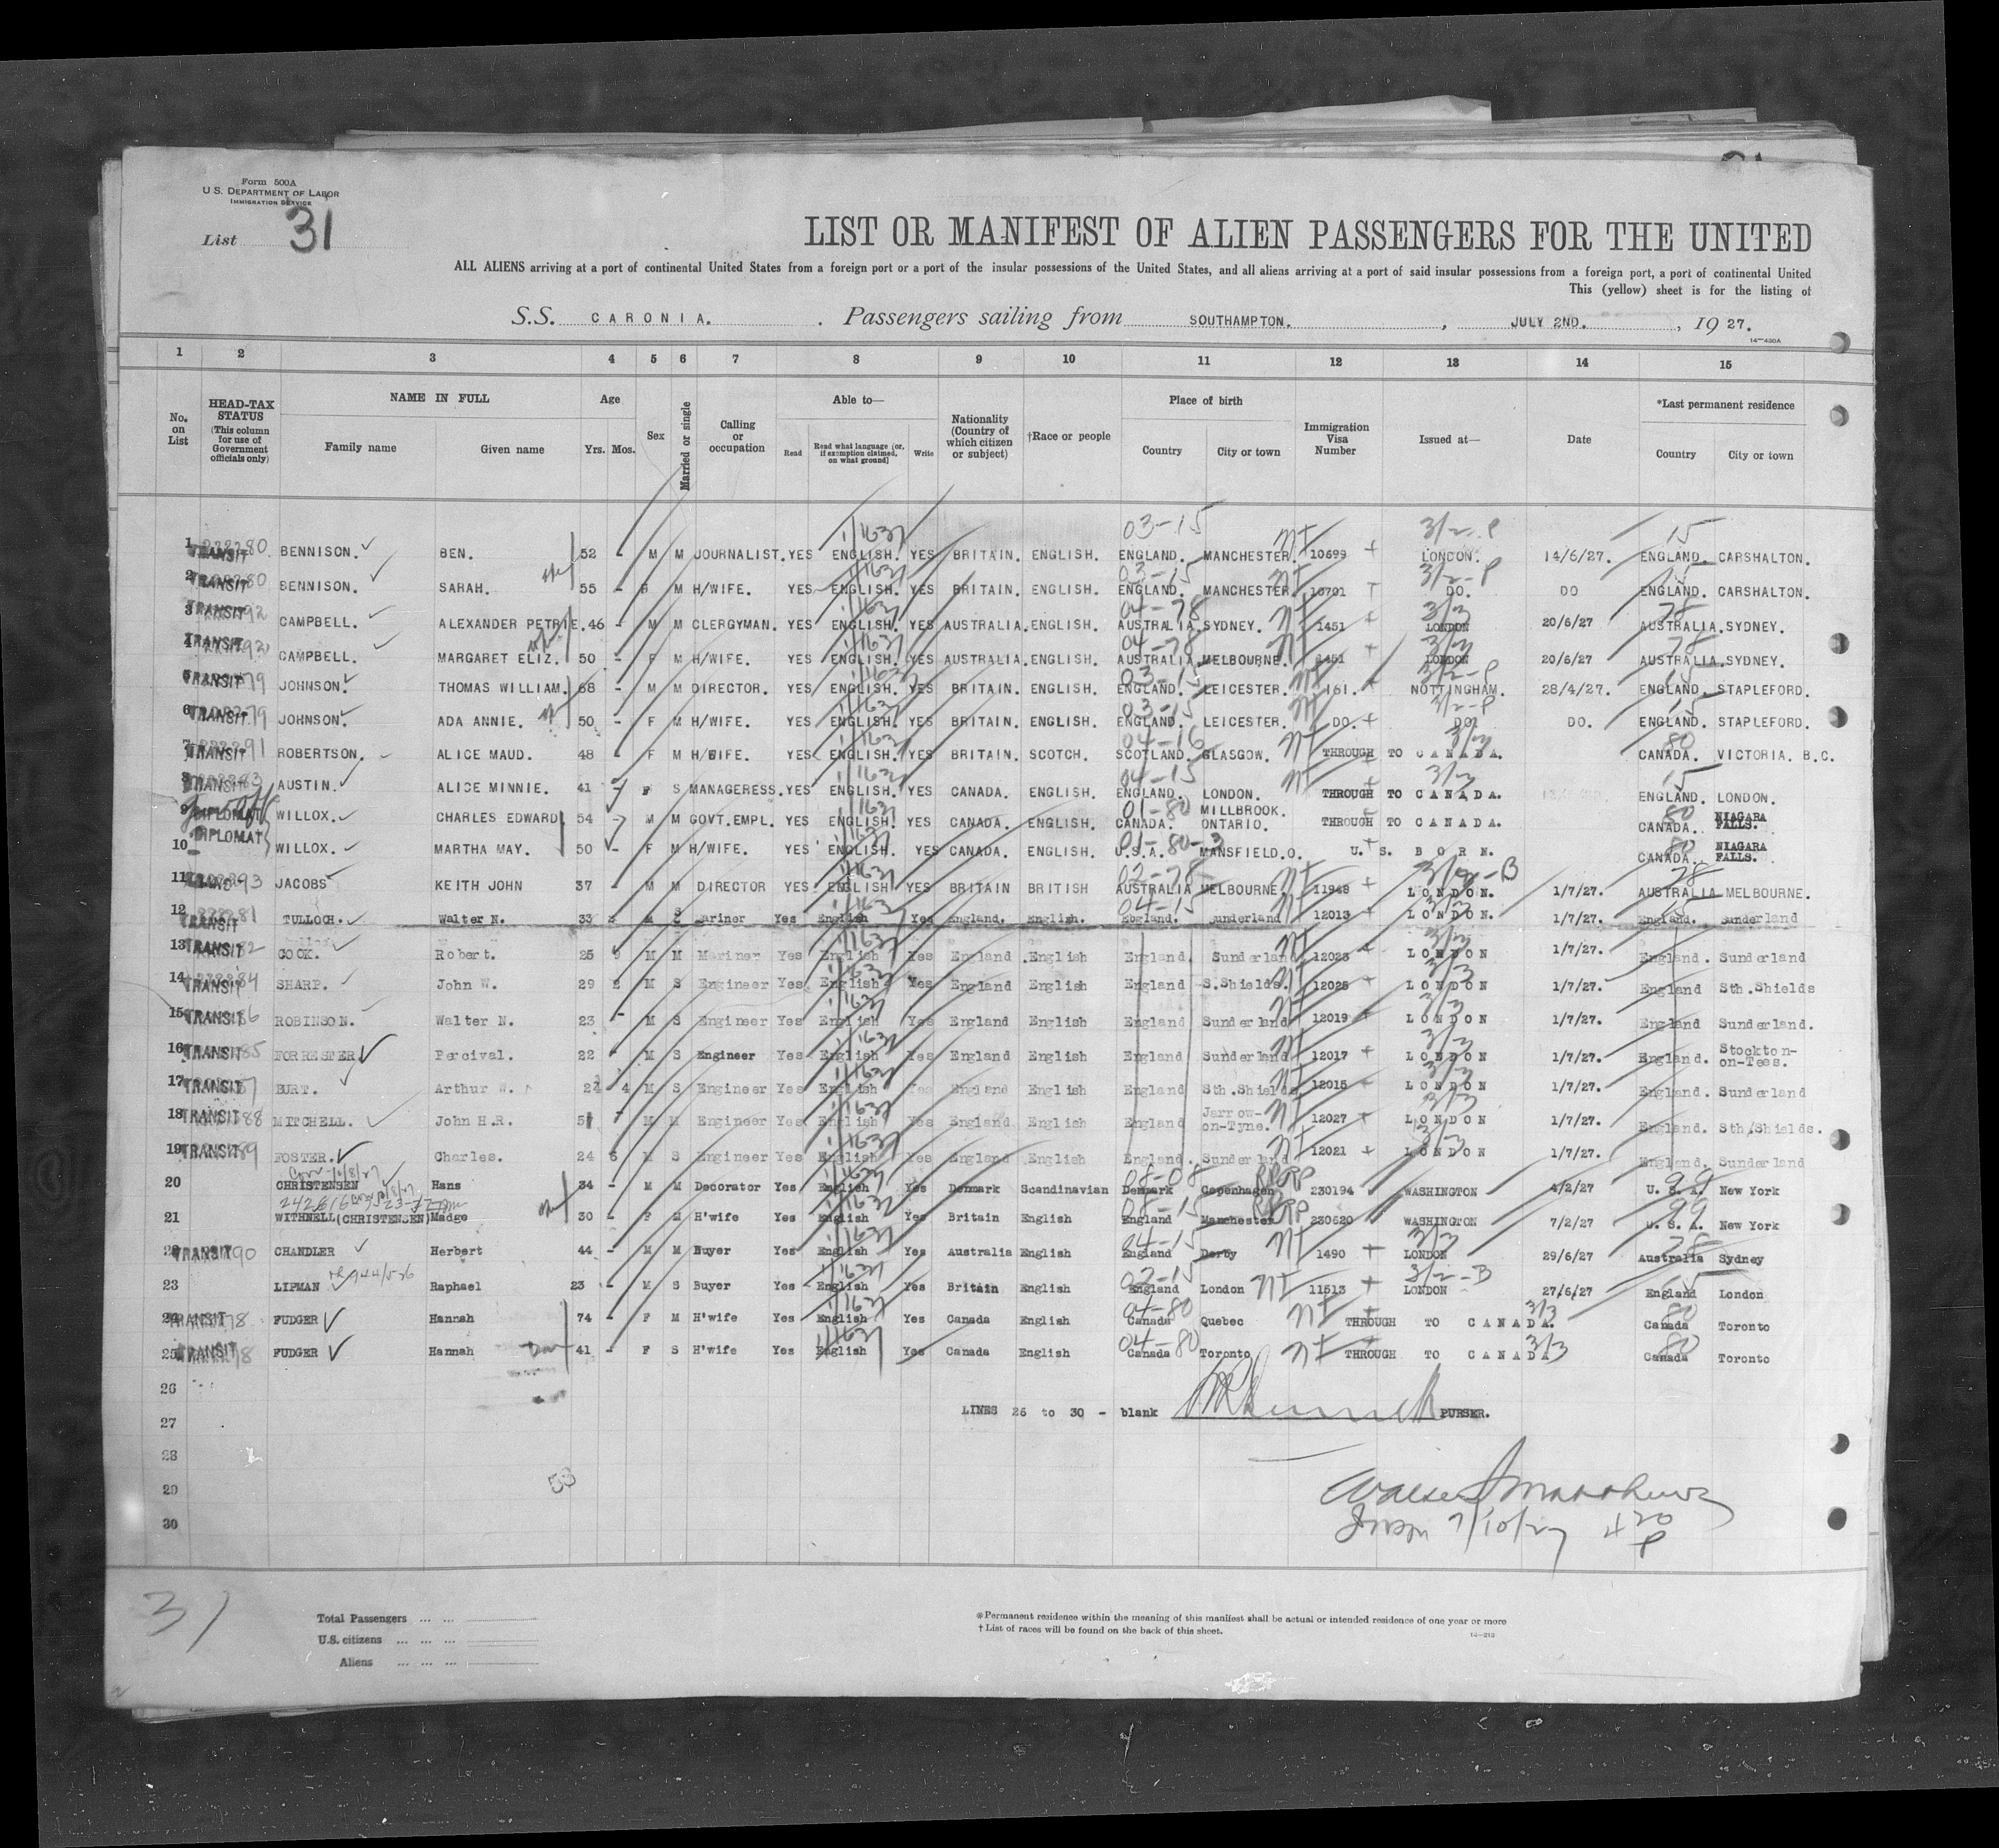 Form 500A
U.S. DEPARTMENT OF LABOR
IMMIGRATION SERVICE
List 31
LIST OR MANIFEST OF ALIEN PASSENGERS FOR THE UNITED
ALL ALIENS arriving at a port of continental United States from a foreign port or a port of the insular possessions of the United States, and all aliens arriving at a port of said insular possessions from a foreign port, a port of continental United
This (yellow) sheet is for the listing of
S.S. CARONIA. Passengers sailing from SOUTHAMPTON. , JULY 2ND. , 19 27.
14—430A
1 2 3 4 5 6 7 8 9 10 11 12 13 14 15
No. on List HEAD-TAX STATUS (This column for use of Government officials only) NAME IN FULL Family name Given name Age Yrs. Mos. Sex Married or single Calling or occupation Able to— Read Read what language (or, if exemption claimed, on what ground) Write Nationality (Country of which citizen or subject) †Race or people Place of birth Country City or town Immigration Visa Number Issued at— Date *Last permanent residence Country City or town
1 TRANSIT BENNISON. BEN. 52 - M M JOURNALIST. YES ENGLISH. YES BRITAIN. ENGLISH. 03-15 ENGLAND. MANCHESTER. 10699 3/2-P LONDON. 14/6/27. 15 ENGLAND. CARSHALTON.
2 TRANSIT BENNISON. SARAH. 55 - F M H/WIFE. YES ENGLISH. YES BRITAIN. ENGLISH. 03-15 ENGLAND. MANCHESTER 10701 3/2-P DO. DO ENGLAND. CARSHALTON.
3 TRANSIT CAMPBELL. ALEXANDER PETRIE. 46 - M M CLERGYMAN. YES ENGLISH. YES AUSTRALIA. ENGLISH. 04-78 AUSTRALIA. SYDNEY. 1451 3/3 LONDON 20/6/27 78 AUSTRALIA. SYDNEY.
4 TRANSIT CAMPBELL. MARGARET ELIZ. 50 - F M H/WIFE. YES ENGLISH. YES AUSTRALIA. ENGLISH. 04-78 AUSTRALIA. MELBOURNE. 1451 3/3 LONDON 20/6/27 78 AUSTRALIA. SYDNEY.
5 TRANSIT JOHNSON. THOMAS WILLIAM. 68 - M M DIRECTOR. YES ENGLISH. YES BRITAIN. ENGLISH. 03-15 ENGLAND. LEICESTER. 161. 3/2-P NOTTINGHAM. 28/4/27. ENGLAND. STAPLEFORD.
6 TRANSIT JOHNSON. ADA ANNIE. 50 - F M H/WIFE. YES ENGLISH. YES BRITAIN. ENGLISH. 03-15 ENGLAND. LEICESTER. DO. 3/2-P DO. DO. ENGLAND. STAPLEFORD.
7 TRANSIT ROBERTSON. ALICE MAUD. 48 - F M H/WIFE. YES ENGLISH. YES BRITAIN. SCOTCH. 04-16 SCOTLAND. GLASGOW. THROUGH TO CANADA. 3/3 80 CANADA. VICTORIA. B.C.
8 TRANSIT AUSTIN. ALICE MINNIE. 41 - F S MANAGERESS. YES ENGLISH. YES CANADA. ENGLISH. 04-15 ENGLAND. LONDON. THROUGH TO CANADA. 3/3 15 ENGLAND. LONDON.
9 DIPLOMAT WILLOX. CHARLES EDWARD 54 - M M GOVT.EMPL. YES ENGLISH. YES CANADA. ENGLISH. 01-80 CANADA. MILLBROOK. ONTARIO. THROUGH TO CANADA. 80 CANADA. NIAGARA FALLS.
10 DIPLOMAT WILLOX. MARTHA MAY. 50 - F M H/WIFE. YES ENGLISH. YES CANADA. ENGLISH. 01-80-3 U.S.A. MANSFIELD.O. U.S. BORN. 80 CANADA. NIAGARA FALLS.
11 JACOBS KEITH JOHN 37 - M M DIRECTOR YES ENGLISH YES BRITAIN BRITISH 02-78 AUSTRALIA MELBOURNE. 11949 3/2-B LONDON. 1/7/27. 78 AUSTRALIA MELBOURNE.
12 TRANSIT TULLOCH. Walter N. 33 M S Mariner Yes English Yes England. English. 04-15 England. Sunderland 12013 LONDON. 1/7/27. 15 England. Sunderland
13 TRANSIT COOK. Robert. 25 M M Mariner Yes English Yes England English England. Sunderland 12023 3/3 LONDON 1/7/27. England. Sunderland
14 TRANSIT SHARP. John W. 29 M S Engineer Yes English Yes England English England S.Shields. 12025 3/3 LONDON 1/7/27. England Sth.Shields
15 TRANSIT ROBINSON. Walter N. 23 - M S Engineer Yes English Yes England English England Sunderland 12019 3/3 LONDON 1/7/27. England Sunderland.
16 TRANSIT FORRESTER Percival. 22 M S Engineer Yes English Yes England English England Sunderland 12017 3/3 LONDON 1/7/27. England. Stockton-on-Tees.
17 TRANSIT BURT. Arthur W. 22 4 M S Engineer Yes English Yes England English England Sth.Shields 12015 3/3 LONDON 1/7/27. England. Sunderland
18 TRANSIT MITCHELL. John H.R. 51 M M Engineer Yes English Yes England English England Jarrow-on-Tyne. 12027 3/3 LONDON 1/7/27. England. Sth/Shields.
19 TRANSIT FOSTER. Charles. 24 6 M S Engineer Yes English Yes England English England. Sunderland 12021 3/3 LONDON 1/7/27. England. Sunderland
20 CHRISTENSEN Hans 34 - M M Decorator Yes English Yes Denmark Scandinavian 08-08 Denmark Copenhagen 230194 WASHINGTON 4/2/27 99 U.S.A. New York
21 WITHNELL(CHRISTENSEN) Madge 30 - F M H'wife Yes English Yes Britain English 08-15 England Manchester 230620 WASHINGTON 7/2/27 99 U.S.A. New York
22 TRANSIT CHANDLER Herbert 44 - M M Buyer Yes English Yes Australia English 04-15 England Derby 1490 3/3 LONDON 29/6/27 78 Australia Sydney
23 LIPMAN Raphael 23 - M S Buyer Yes English Yes Britain English 02-15 England London 11513 3/2-B LONDON 27/6/27 15 England London
24 TRANSIT FUDGER Hannah 74 - F M H'wife Yes English Yes Canada English 04-80 Canada Quebec THROUGH TO CANADA. 3/3 80 Canada Toronto
25 TRANSIT FUDGER Hannah 41 - F S H'wife Yes English Yes Canada English 04-80 Canada Toronto THROUGH TO CANADA 3/3 80 Canada Toronto
26
27 LINES 26 to 30 - blank PURSER.
28
29 53
30 7/10/27
31
Total Passengers ... ...
U.S. citizens ... ... ...
Aliens ... ... ...
*Permanent residence within the meaning of this manifest shall be actual or intended residence of one year or more
† List of races will be found on the back of this sheet.
14—213